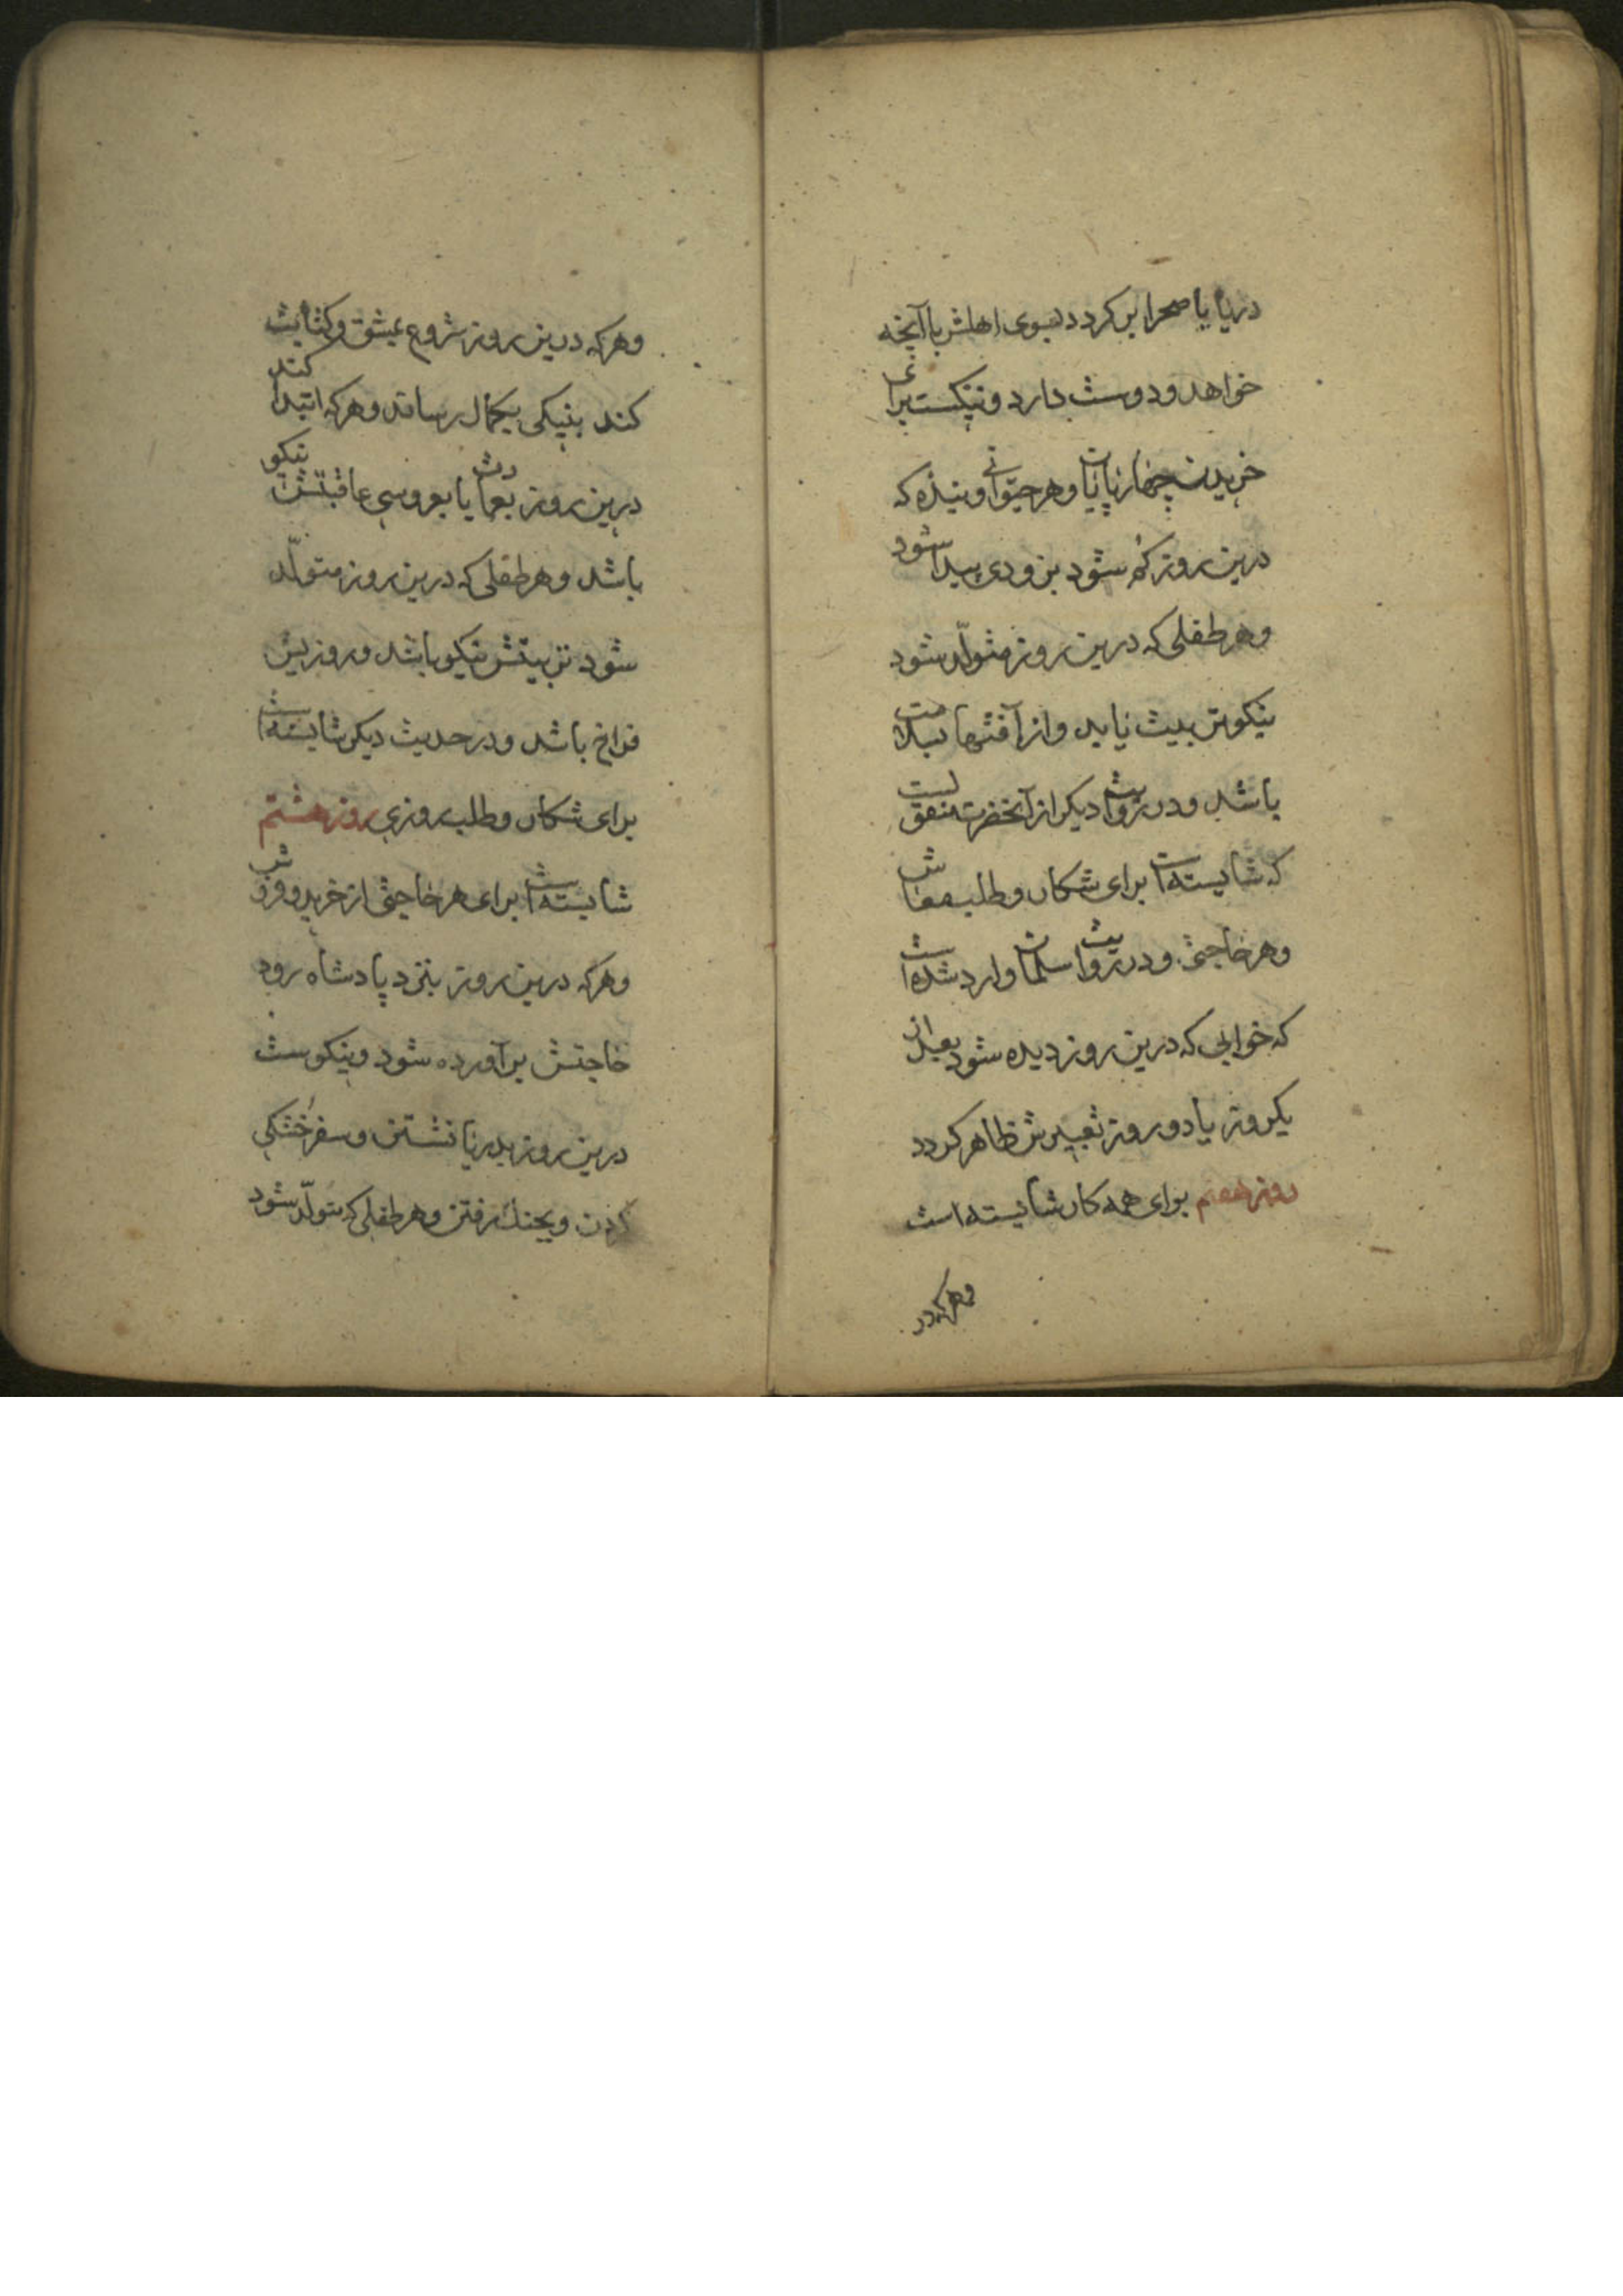 دریا یا صحرا بر کردد بسوی اهلش با آنچه
خواهد و دوست دارد و نیکست برای
خریدن چهارپایان و هر حیوانی و بنده که
درین روز کم شود بزودی پیدا شود
و هر طفلی که درین روز متولّد شود
نیکو تربیت یابد و از آفتها سلامت
باشد و در روایت دیکر از آنحضرت منقولست
که شایسته است برای شکار و طلب معاش
و هر حاجتی و در روایت سلمان وارد شده است
که خوابی که درین روز دیده شود بعد از
یکروز یا دو روز تعبیرش ظاهر کردد
روز هفتم برای همه کار شایسته است
و هر که در
و هر که درین روز شروع بمشق و کتابت
کند بنیکی بکمال رساند و هر که ابتدا کند
درین روز بعمارت یا بعروسی عاقبتش نیکو
باشد و هر طفلی که درین روز متولّد
شود تربیتش نیکو باشد و روزیش
فراخ باشد و در حدیث دیکر شایسته است
برای شکار و طلب روزی روز هشتم
شایسته است برای هر حاجتی از خرید و فروش
و هر که درین روز بنزد پادشاه رود
حاجتش برآورده شود و نیکوست
درین روز بدریا نشستن و سفر خشکی
کردن و بجنک رفتن و هر طفلی که متولّد شود